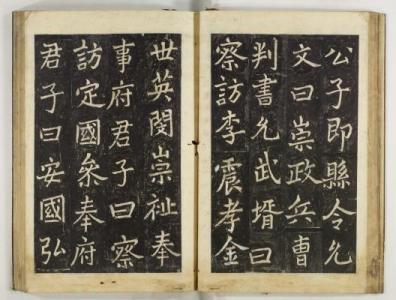 公子即縣令允
文曰崇政兵曹
判書允武壻曰
察訪李震孝金
世英閔崇祉奉
事府君子曰察
訪定國叅奉府
君子曰安國弘